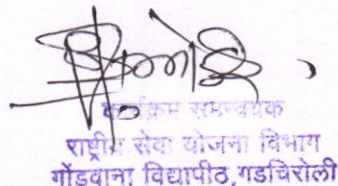 कार्यक्रम समन्वयक
राष्ट्रीय सेवा योजना विभाग
गोंडवाना विद्यापीठ,गडचिरोली